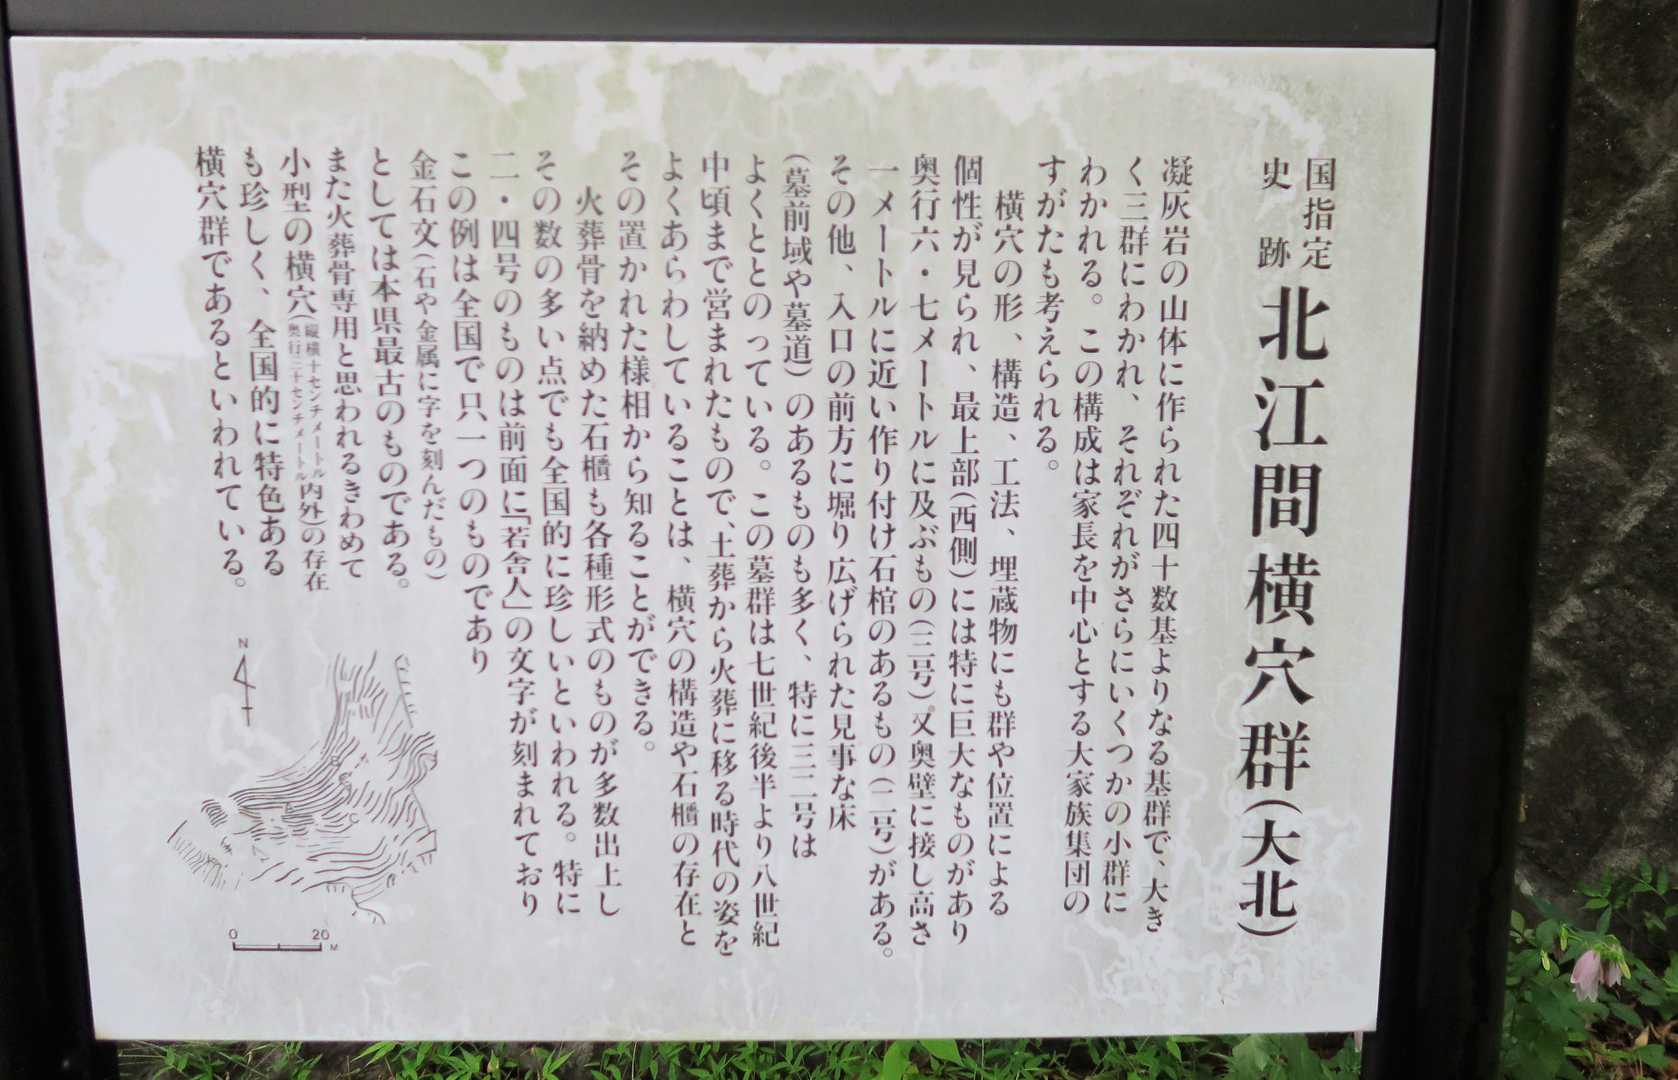 国指定
史跡
北江間横穴群(大北)
凝灰岩の山体に作られた四十数基よりなる基群で、大き
く三群にわかれ、それぞれがさらにいくつかの小群に
わかれる。この構成は家長を中心とする大家族集団の
すがたも考えられる。
横穴の形、構造、工法、埋蔵物にも群や位置による
個性が見られ、最上部(西側)には特に巨大なものがあり
奥行六・七メートルに及ぶもの(三号)。又奥壁に接し高さ
一メートルに近い作り付け石棺のあるもの(二号)がある。
その他、入口の前方に堀り広げられた見事な床
(墓前域や墓道)のあるものも多く、特に三二号は
よくととのっている。この墓群は七世紀後半より八世紀
中頃まで営まれたもので、土葬から火葬に移る時代の姿を
よくあらわしていることは、横穴の構造や石櫃の存在と
その置かれた様相から知ることができる。
火葬骨を納めた石櫃も各種形式のものが多数出上し
その数の多い点でも全国的に珍しいといわれる。特に
二・四号のものは前面に「若舎人」の文字が刻まれており
この例は全国で只一つのものであり
金石文(石や金属に字を刻んだもの)
としては本県最古のものである。
また火葬骨専用と思われるきわめて
小型の横穴(縦横十センチメートル奥行三十センチメートル内外)の存在
も珍しく、全国的に特色ある
横穴群であるといわれている。
N
0 20 M